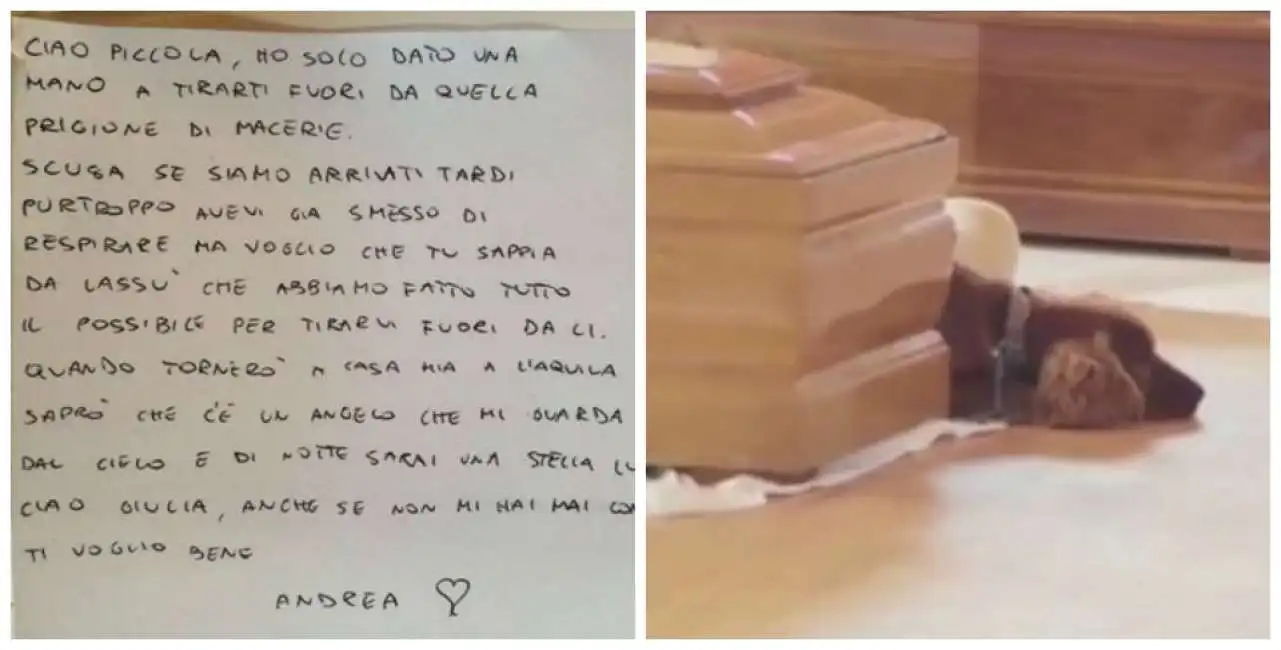 CIAO PICCOLA, HO SOLO DATO UNA
MANO A TIRARTI FUORI DA QUELLA
PRIGIONE DI MACERIE.
SCUSA SE SIAMO ARRIVATI TARDI
PURTROPPO AVEVI GIA SMESSO DI
RESPIRARE MA VOGLIO CHE TU SAPPIA
DA LASSU' CHE ABBIAMO FATTO TUTTO
IL POSSIBILE PER TIRARVI FUORI DA LI.
QUANDO TORNERO' A CASA MIA A L'AQUILA
SAPRO' CHE C'È UN ANGELO CHE MI GUARDA
DAL CIELO E DI NOTTE SARAI UNA STELLA
CIAO GIULIA, ANCHE SE NON MI HAI MAI
TI VOGLIO BENE
ANDREA